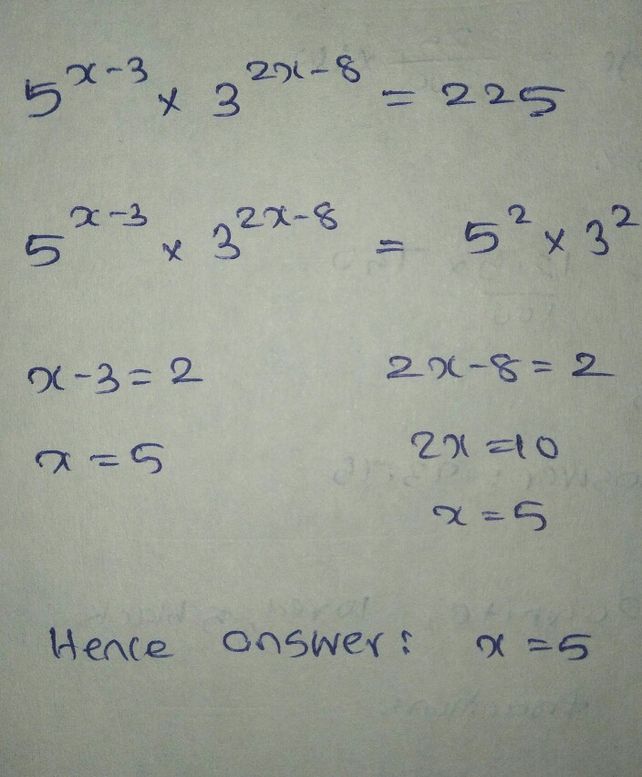 5^{x-3} × 3^{2x-8} = 225
5^{x-3} × 3^{2x-8} = 5^2 × 3^2
x-3=2 2x-8=2
x=5 2x=10
x=5
Hence answer: x=5